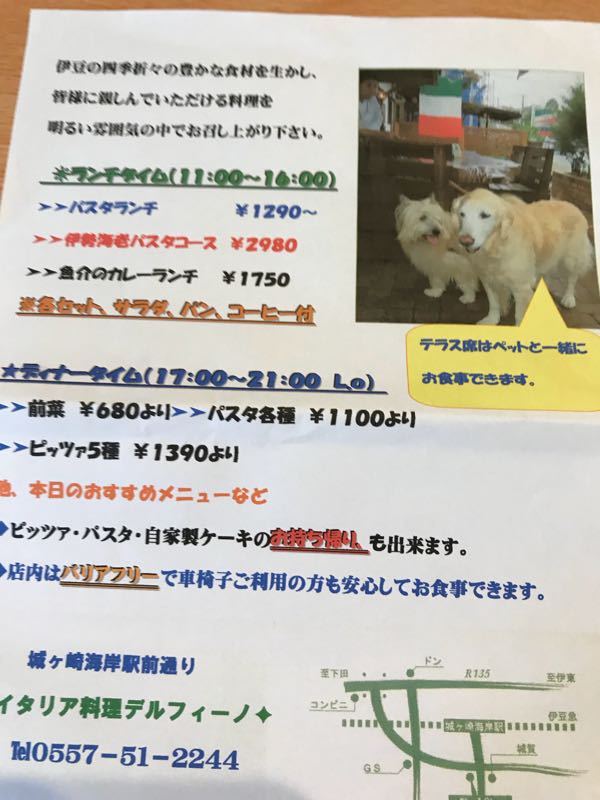 伊豆の四季折々の豊かな食材を生かし、
皆様に親しんでいただける料理を
明るい雰囲気の中でお召し上がり下さい。
※ランチタイム(11:00～16:00)
➢➢パスタランチ ￥1290～
➢➢伊勢海老パスタコース ￥2980
➢➢魚介のカレーランチ ￥1750
※各セット、サラダ、パン、コーヒー付
テラス席はペットと一緒に
お食事できます。
★ディナータイム(17:00～21:00 Lo)
➢➢前菜 ￥680より➢➢パスタ各種 ￥1100より
➢➢ピッツァ5種 ￥1390より
他、本日のおすすめメニューなど
◆ピッツァ・パスタ・自家製ケーキのお持ち帰り、も出来ます。
◆店内はバリアフリーで車椅子ご利用の方も安心してお食事できます。
城ヶ崎海岸駅前通り
イタリア料理デルフィーノ✦
℡0557-51-2244
ドン
至下田
R135
至伊東
コンビニ
伊豆急
城ヶ崎海岸駅
城賀
GS